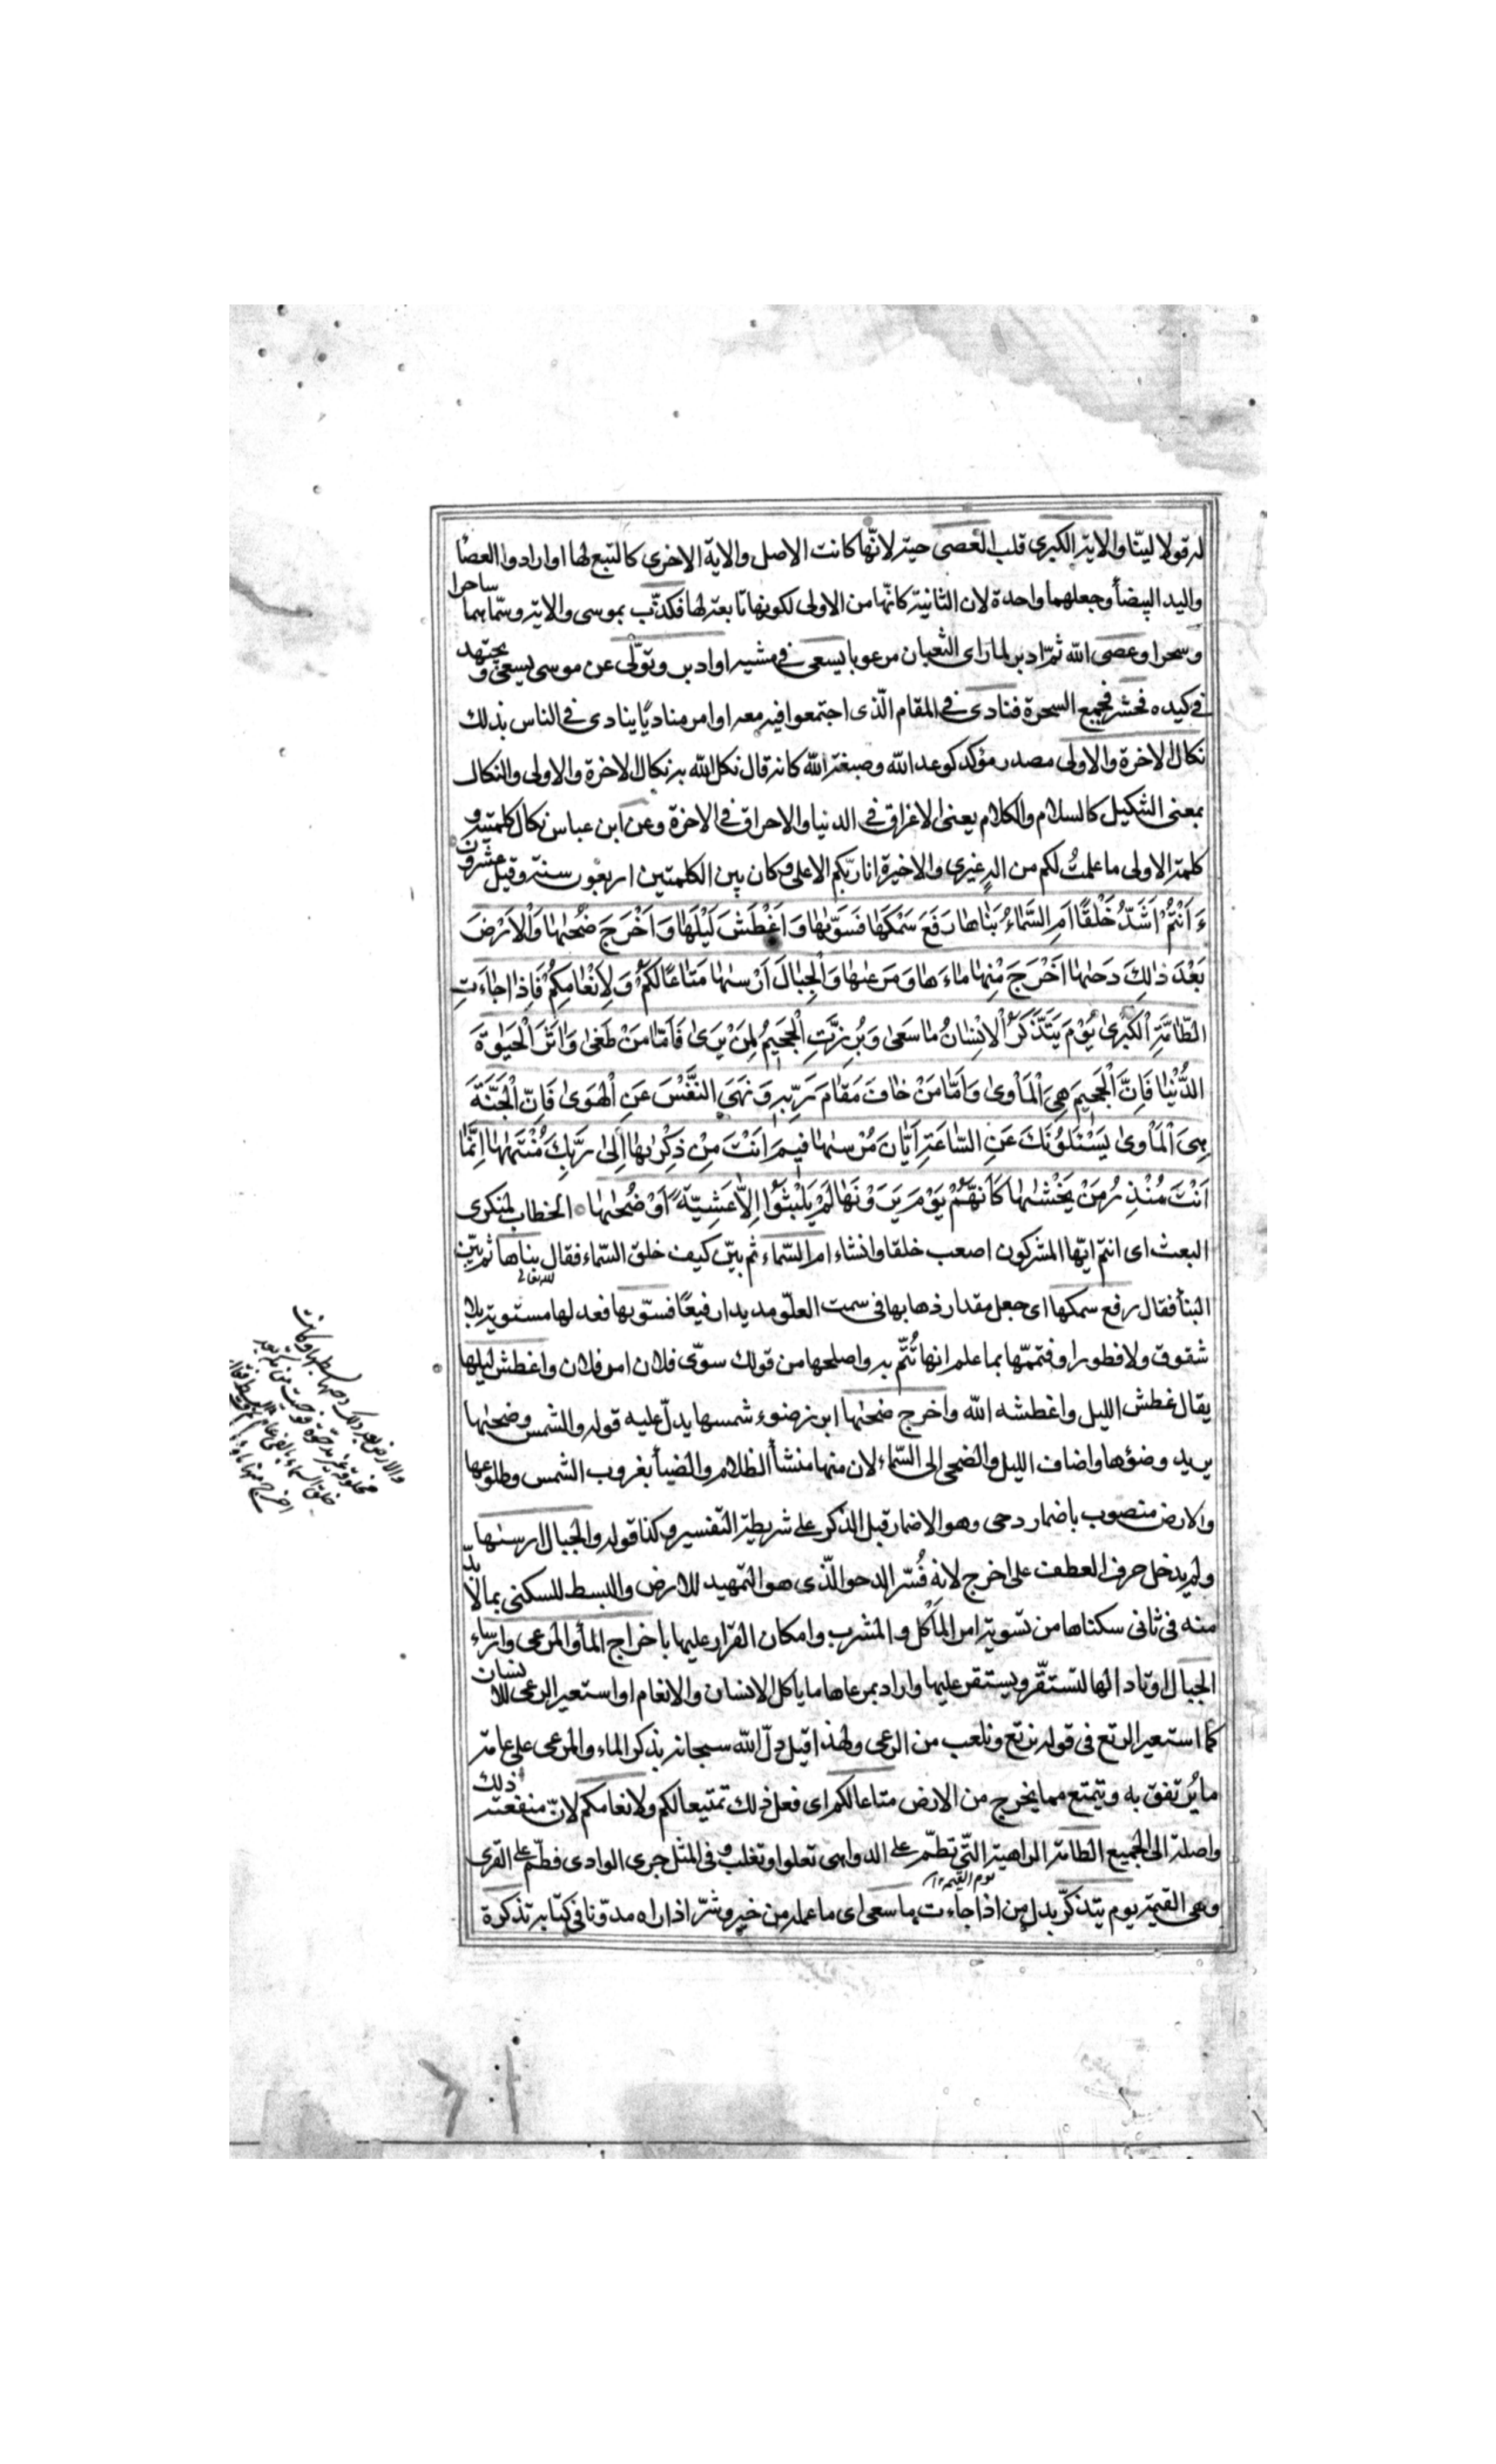 له قولا لينّا والاية الكبرى قلب العصى حية لانّها كانت الاصل والاية الاخرى كالتبع لها او ارادوا العصا
واليد البيضأ وجعلهما واحدة لان الثانية كانّها من الاولى لكونها تابعة لها فكذّب بموسى والاية وسمّاهما ساحرا
وسحرا وعصى الله ثمّ ادبر لما رأى الثعبان مرعوبا يسعى فى مشيه او ادبر وتولّى عن موسى يسعى ويجتهد
فى كيده فحشر فجمع السحرة فنادى فى المقام الّذى اجتمعوا فيه معه او امر مناديًا ينادى فى الناس بذلك
نكال الاخرة والاولى مصدر مؤكد كوعد الله وصبغة الله كانه قال نكل الله به نكال الاخرة والاولى والنكال
بمعنى التنكيل كالسلام والكلام يعنى الاغراق فى الدنيا والاحراق فى الاخرة وعن ابن عباس نكال كلمتيه و
كلمة الاولى ما علمتُ لكم من اله غيرى والاخيرة انا ربّكم الاعلى وكان بين الكلمتين اربعون سنة وقيل عشرون
ءَاَنْتُمْ اَشَدُّ خَلْقًا اَمِ السَّمَاءُ بَنٰاها رَفَعَ سَمْكَهٰا فَسَوّٰيهٰا وَاَغْطَشَ لَيْلَهٰا وَاَخْرَجَ ضُحٰىهٰا وَالْاَرْضَ
بَعْدَ ذٰلِكَ دَحٰىهٰا اَخْرَجَ مِنْهٰا مٰاءَهٰا وَمَرْعٰىهٰا وَالْجِبٰالَ اَرْسٰىهٰا مَتٰاعًا لَكُمْ وَلِاَنْعٰامِكُمْ فَاِذٰا جٰاءَتِ
الطّٰامَّةُ الْكُبْرىٰ يَوْمَ يَتَذَكَّرُ الْاِنْسٰانُ مٰا سَعىٰ وَبُرِّزَتِ الْجَحيمُ لِمَنْ يَرىٰ فَاَمّٰا مَنْ طَغىٰ وَاٰثَرَ الْحَيٰوةَ
الدُّنْيٰا فَاِنَّ الْجَحيمَ هِىَ الْمَأْوىٰ وَاَمّٰا مَنْ خٰافَ مَقٰامَ رَبِّه وَنَهَى النَّفْسَ عَنِ الْهَوىٰ فَاِنَّ الْجَنَّةَ
هِىَ الْمَأْوىٰ يَسْئَلُونَكَ عَنِ السّٰاعَةِ اَيّٰانَ مُرْسٰىهٰا فيمَ اَنْتَ مِنْ ذِكْرٰيهٰا اِلىٰ رَبِّكَ مُنْتَهٰىهٰا اِنَّمٰا
اَنْتَ مُنْذِرُ مَنْ يَخْشٰىهٰا كَاَنَّهُمْ يَوْمَ يَرَوْنَهٰا لَمْ يَلْبَثُوا اِلّٰا عَشِيَّةً اَوْ ضُحٰىهٰا الخطاب لمنكرى
البعث اى انتم ايّها المشركون اصعب خلقا وانشاء ام السّماء ثم بيّن كيف خلق السّماء فقال بناها ثم بيّن
البنأ فقال رفع سمكها اى جعل مقدار ذهابها فى سمت العلوّ مديدا رفيعًا فسوّيها فعد لها مستوية بلا
شقوق ولا فطور او فتممّها بما علم انها تُتمّ به واصلحها من قولك سوّى فلان امر فلان واغطش ليلها
يقال غطش الليل واغطشه الله واخرج ضحىٰها ابرز ضوء شمسها يدلّ عليه قوله والشمس وضحىٰها
يريد وضؤها واضاف الليل والضحى الى السّماء لان منها منشأ الظلام والضيأ بغروب الشمس وطلوعها
والارض منصوب باضمار دحى وهو الاضمار قبل الذكر على شريطة التفسير وكذا قوله والجبال ارسىٰها
ولم يدخل حرف العطف على اخرج لانه فُسّر الدحو الّذى هو التمهيد للارض والبسط للسكنى بما لا بدّ
منه فى ثانى سكناها من تسوية امر المأكل والمشرب وامكان القرار عليها باخراج المأ والمرعى وارساء
الجبال اوتادا لها لتستقّر ويستقر عليها واراد بمرعاها ما ياكل الانسان والانعام او استعير الرعى للانسان
كما استعير الرتع فى قوله نرتع ونلعب من الرعى ولهذا قيل دلّ الله سبحانه بذكر الماء والمرعى على عامة
ما يُرتفق به ويتمتع مما يخرج من الارض متاعا لكم اى فعل ذلك تمتيعا لكم ولانعامكم لانّ منفعة ذلك
واصلة الى الجميع الطامة الداهية التّى تطمّ على الدواهى تعلوا وتغلب وفى المثل جرى الوادى فطمّ على القرى
وهى القيمة يوم يتذكّر بدل من اذا جاءت ما سعى اى ما عمله من خير وشرّ اذا راه مدوّنا فى كتابه تذكرة
يوم القيمة
والارض بعد ذلك دحيها بسطها وكانت